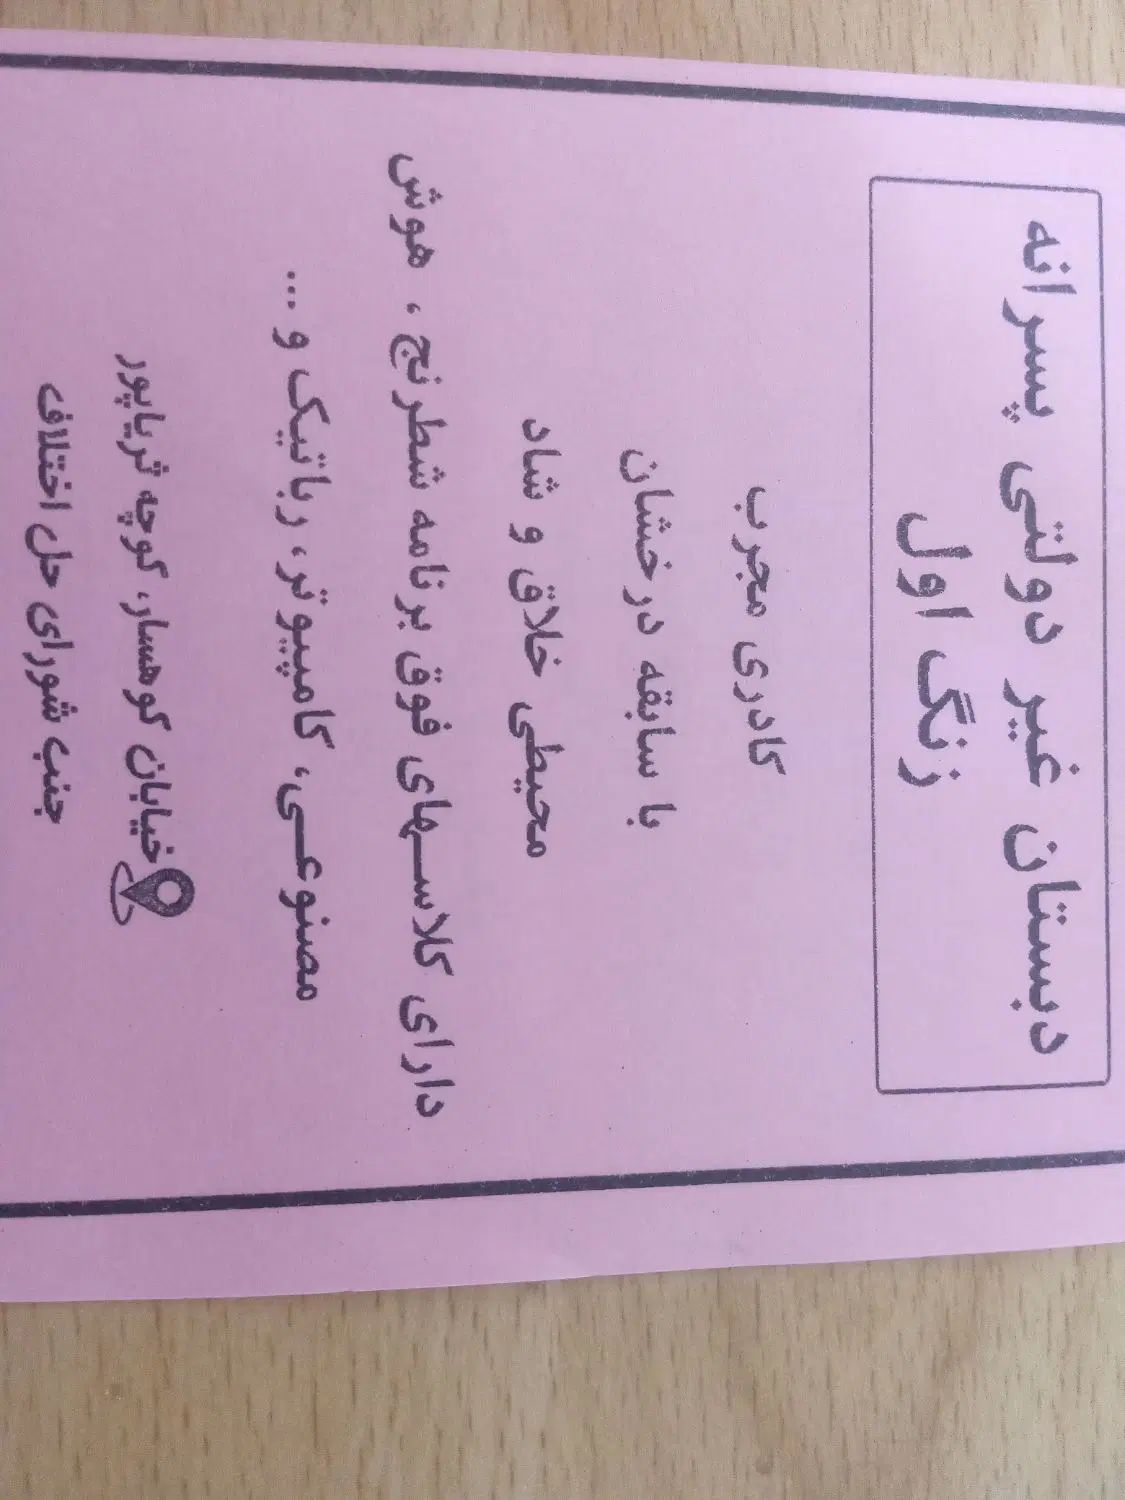 دبستان غیر دولتی پسرانه
زنگ اول
کادری مجرب
با سابقه درخشان
محیطی خلاق و شاد
دارای کلاسهای فوق برنامه شطرنج ، هوش
مصنوعی، کامپیوتر، رباتیک و ...
خیابان کوهسار، کوچه ثریاپور
جنب شورای حل اختلاف